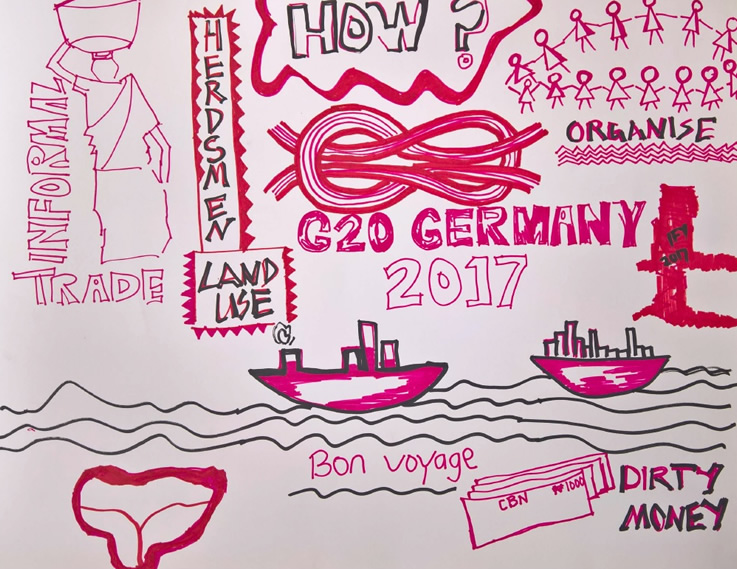 HOW ?
HERDSMEN
LAND
USE
INFORMAL
TRADE
ORGANISE
G20 GERMANY
2017
IFY
2017
Bon voyage
CBN ₦1000
DIRTY
MONEY